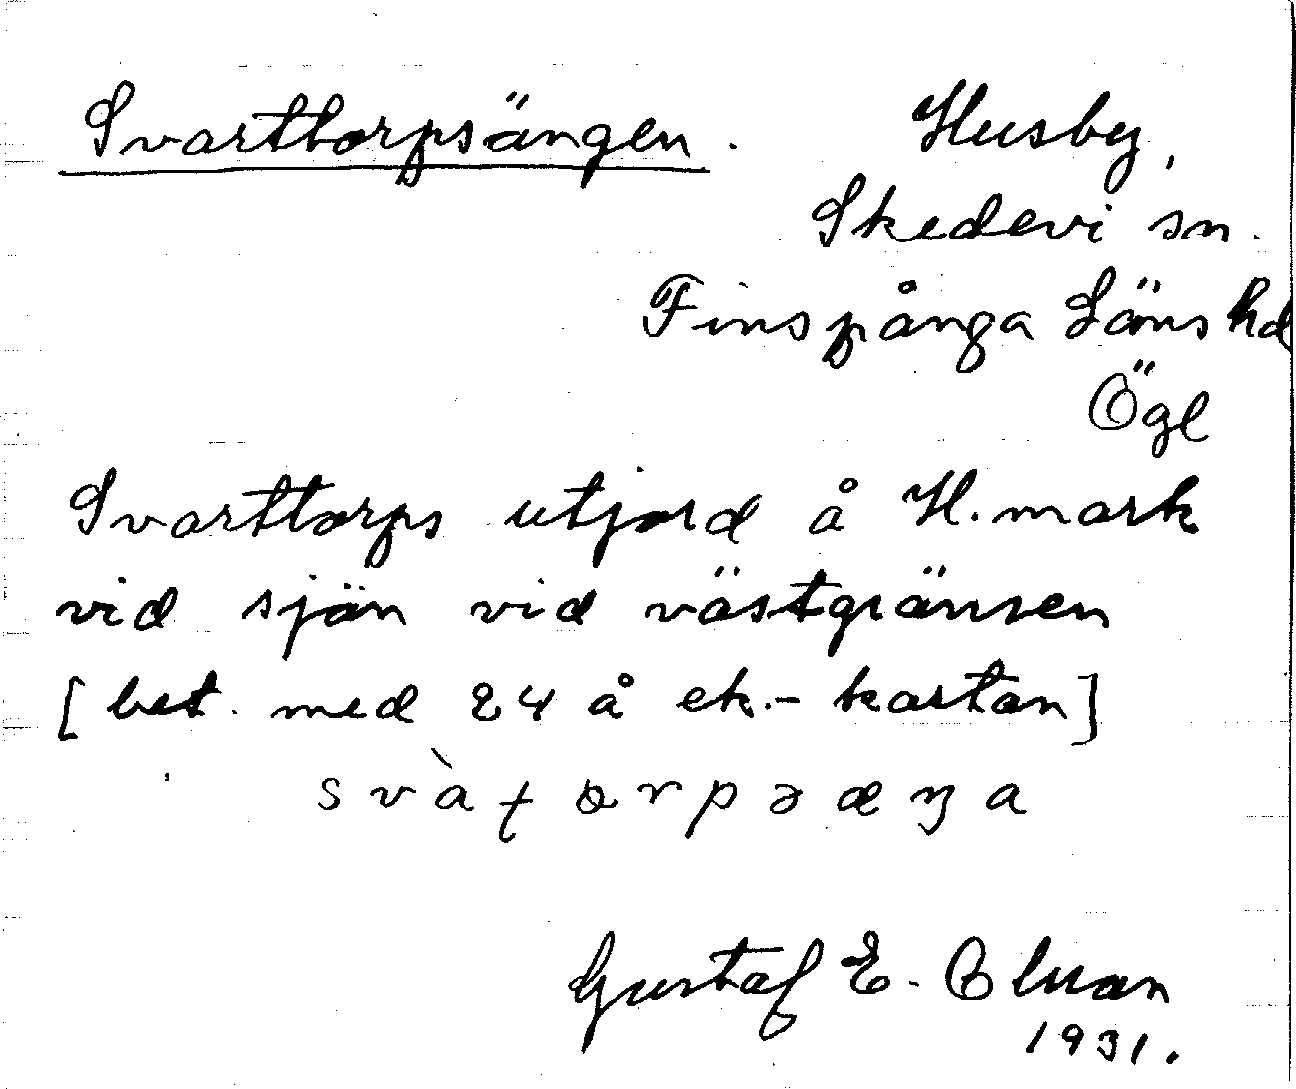 Svarttorpsängen. Husby,
Skedevi sn.
Finspånga Läns hd
Ögl
Svarttorps utjord å H. mark
vid sjön vid västgränsen
[bet. med 24 å ek.-kartan]
Gustaf E.
1931.